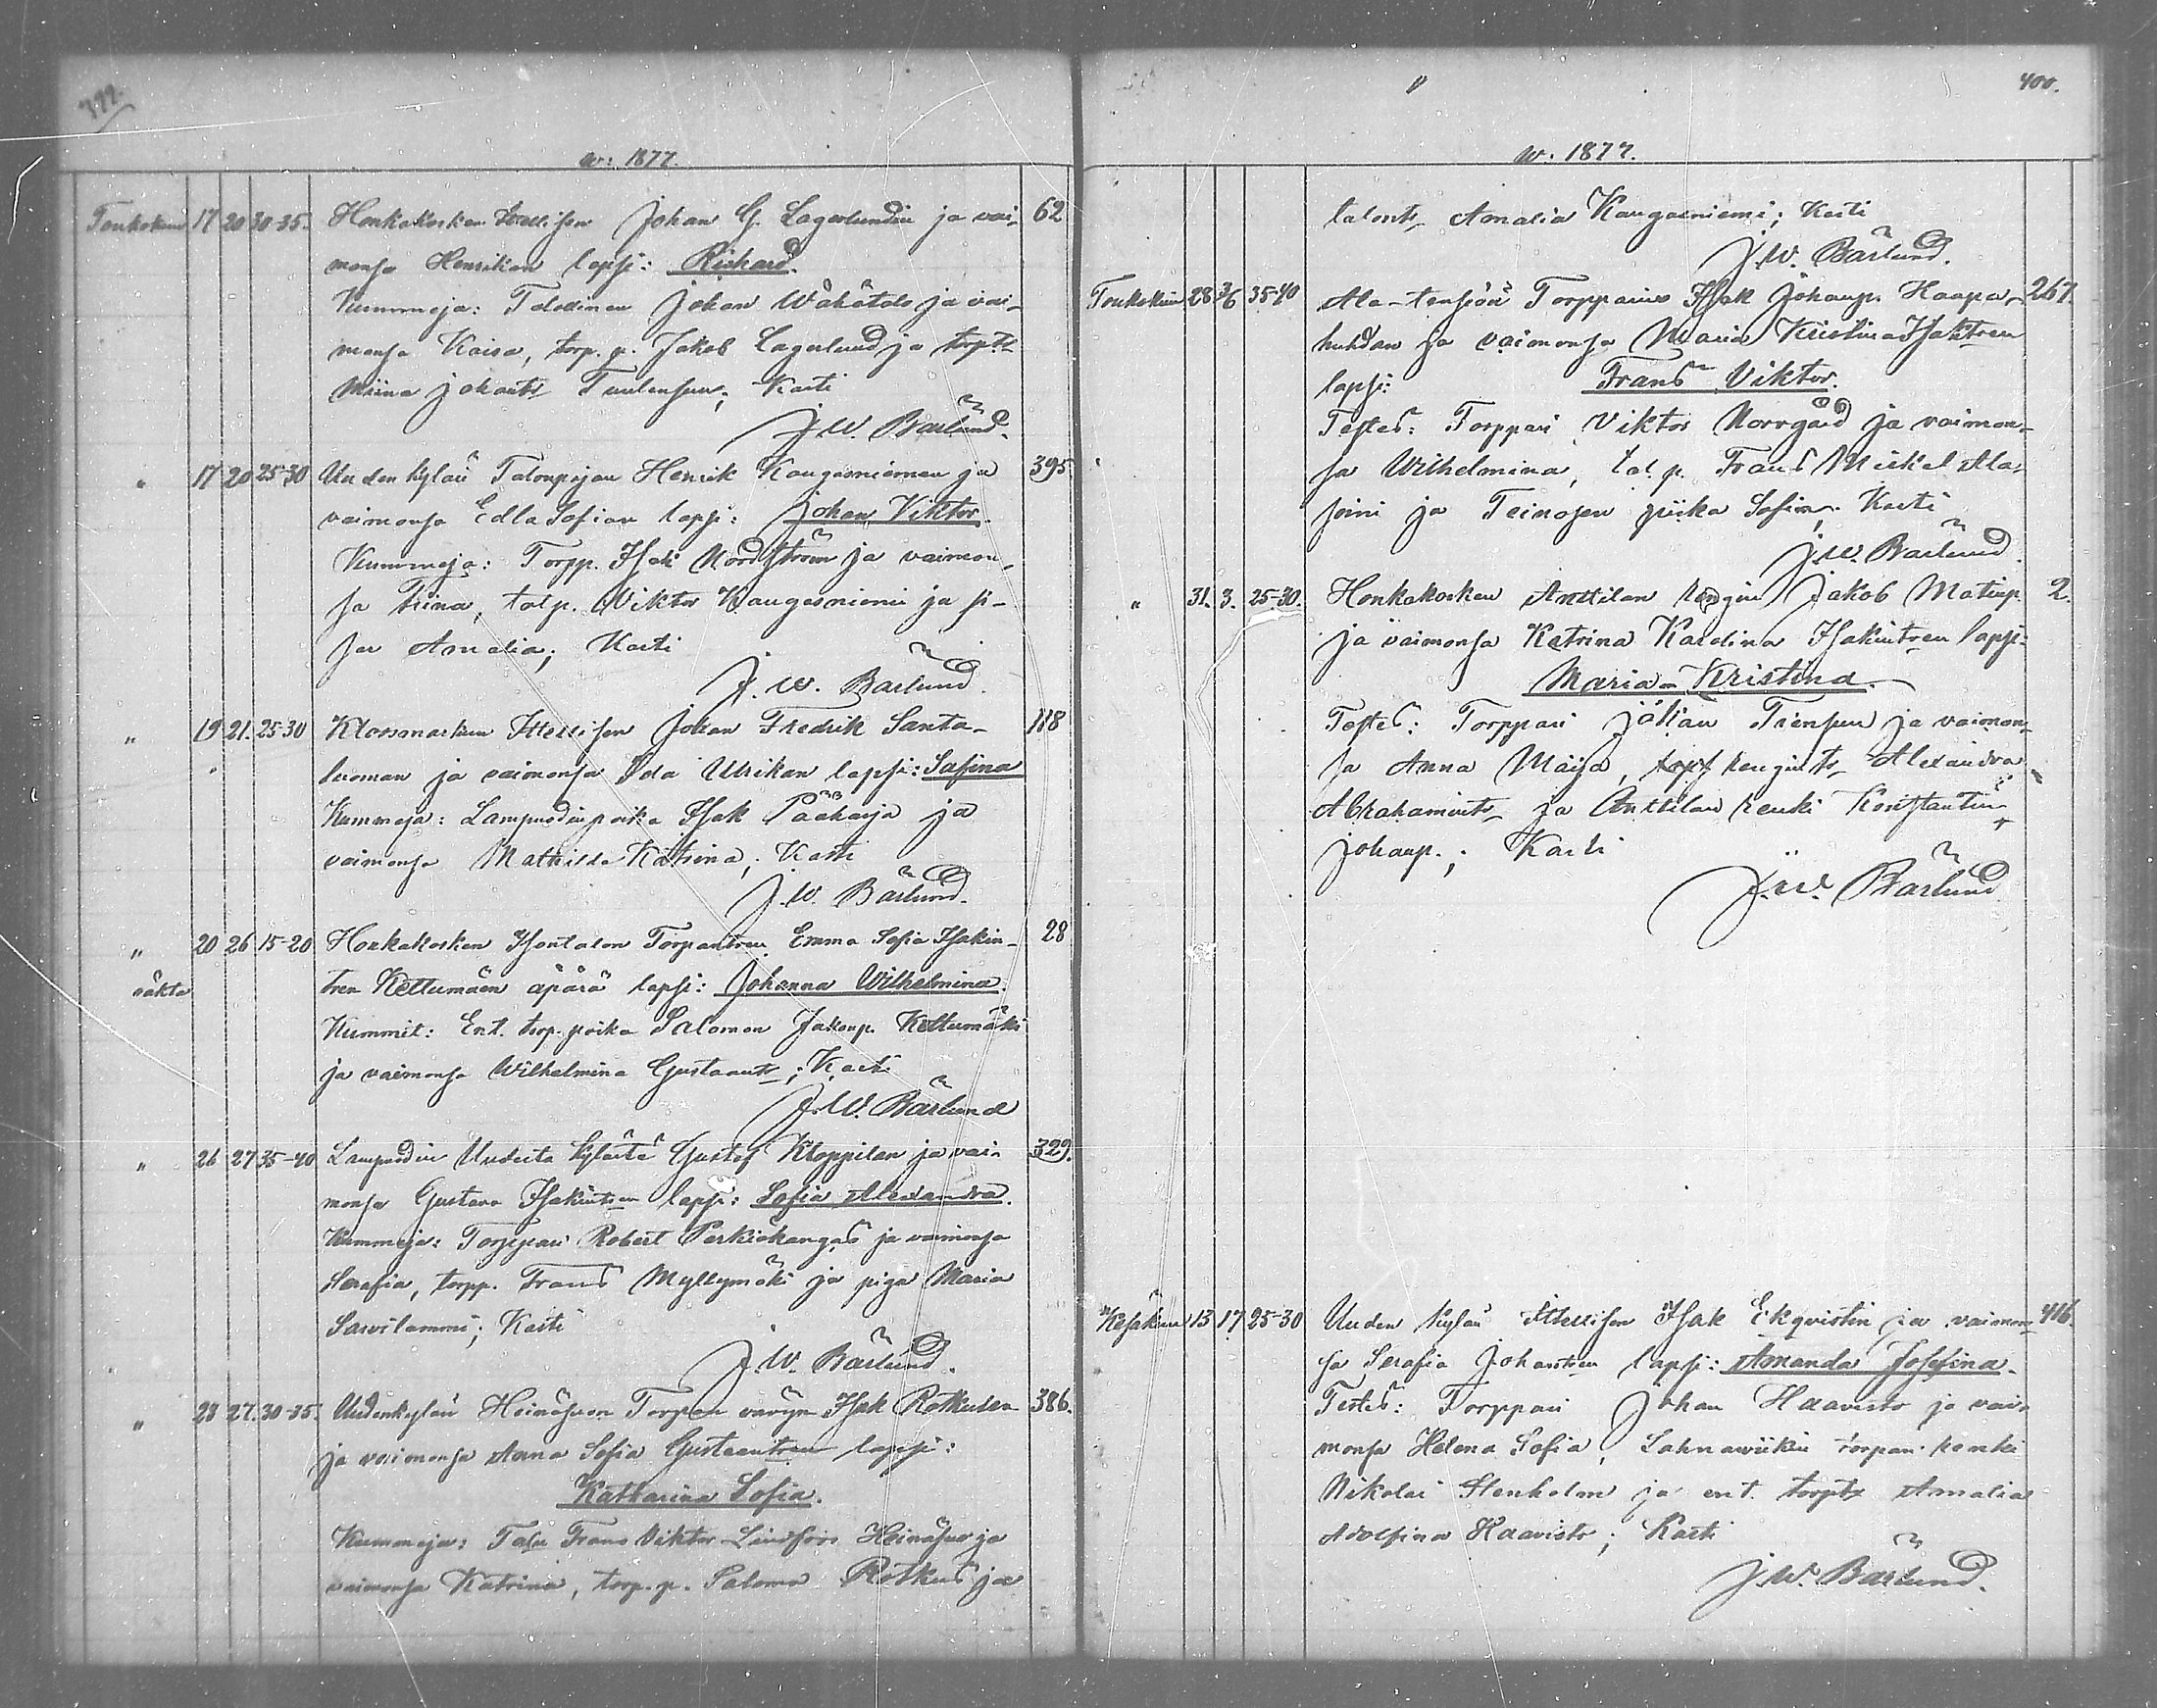 399.
w: 1877.
Toukokuu 17 20 30-35. Honkakosken Itsellisen Johan G. Lagerlundin ja vai- 62
monsa Henrikan lapsi: Richard.
Kummeja: Talollinen Johan Wähätalo ja vai-
monsa Kaisa, torp. p. Jakob Lagerlund ja torptr
Miina Johantr Tuulensuu; Kasti
J. W. Bärlund.
" 17 20 25-30 Uuden kylän Talonpojan Henrik Kangasniemen ja 395
vaimonsa Edla Sofian lapsi: Johan Viktor.
Kummeja: Torpp. Isak Nordström ja vaimon-
sa Trina, tal p. Viktor Kangasniemi ja si-
sar Amalia; Kasti
J. W. Bärlund.
" 19 21. 25-30 Klossmarkun Itsellisen Johan Fredrik Santa- 118
luoman ja vaimonsa Ida Ulrikan lapsi: Safina
Kummeja: Lampuodin poika Isak Pääharja ja
vaimonsa Mathilda Katrina; Kasti
J. W. Bärlund.
" 20 26 15-20 Honkakosken Isontalon Torpantren Emma Sofia Isakin- 28
oäkta tren Kettumäen äpärä lapsi: Johanna Wilhelmina.
Kummit: Ent. torp. poika Salomon Jakonp. Kettumäki
ja vaimonsa Wilhelmina Gustaantr; Kasti
J. W. Bärlund
" 26 27 35-40 Lampuodin Uudesta kylästä Gustaf Kloppilan ja vai- 329.
monsa Gustava Isakintren lapsi: Sofia Alexandra.
Kummeja: Torppari Robert Perkiökangas ja vaimonsa
Serafia, torpp. Frans Myllymäki ja piga Maria
Savilammi; Kasti
J. W. Bärlund.
" 23 27. 30-35. Uudenkylän Heinäsuon Torpan vävyn Isak Rotkusen 386.
ja vaimonsa Anna Sofia Gustaantren lapsi:
Katharina Sofia.
Kummeja: Frans Viktor Lindfors Heinäsuo ja
vaimonsa Katrina, torp. p. Saloma Rotkus ja
400.
w. 1877.
talontr Amalia Kangasniemi; Kasti
J. W. Bärlund.
Toukokuu 28 3/6 35-40 Ala-tensjöö Torpparin Isak Johanp. Haapa- 267.
huhdan ja vaimonsa Maria Kristina Isakstren
lapsi: Frans Viktor.
Testes: Torppari Viktor Norrgård ja vaimon-
sa Wilhelmina, tal. p. Frans Mickel Ala-
soini ja Teinosen piika Sofia; Kasti
J. W. Bärlund.
" 31. 3. 25-30. Honkakosken Anttilan rengin Jakob Matinp. 2.
ja vaimonsa Katrina Karolina Isakintren lapsi:
Maria Kristina.
Testes: Torppari Johan Tiensuu ja vaimon-
sa Anna Maija, rengintr Alexandra
Abrahamintr ja Anttilan renki Konstantin
Johanp.; Kasti
J. W. Bärlund
Kesäkuu 13 17 25-30 Uuden kylän Itsellisen Isak Ekqvistin ja vaimon- 416.
sa Serafia Johantren lapsi: Amanda Josefina.
Testes: Torppari Johan Haavisto ja vai-
monsa Helena Sofia, Lahnawiikin torpan renki
Nikolai Stenholm ja ent. torptr Amalia
Adolfina Haavisto; Kasti
J. W. Bärlund.